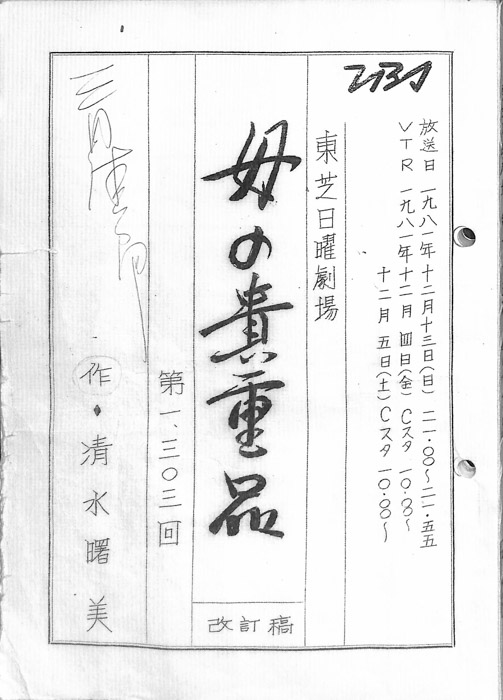 TBS
放送日 一九八一年十二月十三日(日) 二一・〇〇〜二一・五五
VTR 一九八一年十二月四日(金) Cスタ 一〇・〇〇〜
十二月五日(土) Cスタ 一〇・〇〇〜
東芝日曜劇場
母の貴重品
改訂稿
第一、三〇三回
作・清水曙美